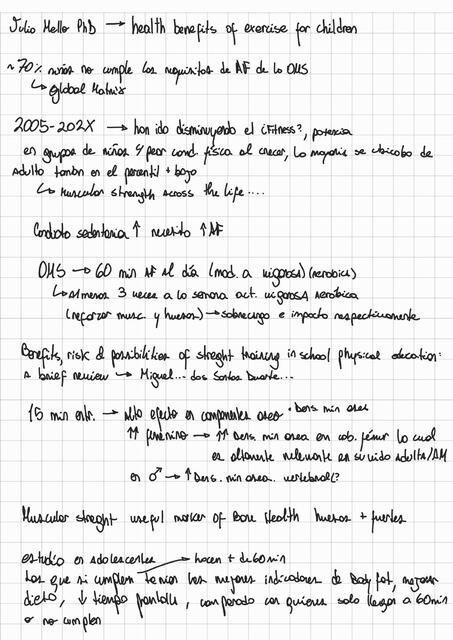 Julio Mello PhD → health benefits of exercise for children
~70% niños no cumple los requisitos de AF de la OMS
↳ Global Matrix
2005-202X → han ido disminuyendo el ¿Fitness?, potencia
en grupos de niños y peor cond. física al crecer, la mayoría se ubicaba de
adulto tambn en el percentil + bajo
↳ Muscular strength across the life....
Conducta sedentaria ↑ necesito ↑ AF
OMS → 60 min AF al día (mod. a vigorosa) (aeróbica)
↳ Al menos 3 veces a la semana act. vigorosa aeróbica
(reforzar musc. y huesos) → sobrecarga e impacto respectivamente
Benefits, risk & possibilities of streght training in school physical education:
a brief review → Miguel... dos Santos Duarte...
15 min entr. → alto efecto en componentes oseo • Dens. min osea
↑↑ femenino → ↑↑ Dens. min osea en cab. fémur lo cual
es altamente relevante en su vida adulta/AM
en ♂ → ↑ Dens. min osea. vertebral(?
Muscular streght useful marker of Bone Health huesos + fuertes
estudio en adolescentes → hacen + de 60 min
Los que si cumplen tenían los mejores indicadores de Body fat, mejor
dieta, ↓ tiempo pantalla, comparado con quienes solo llegan a 60min
o no cumplen